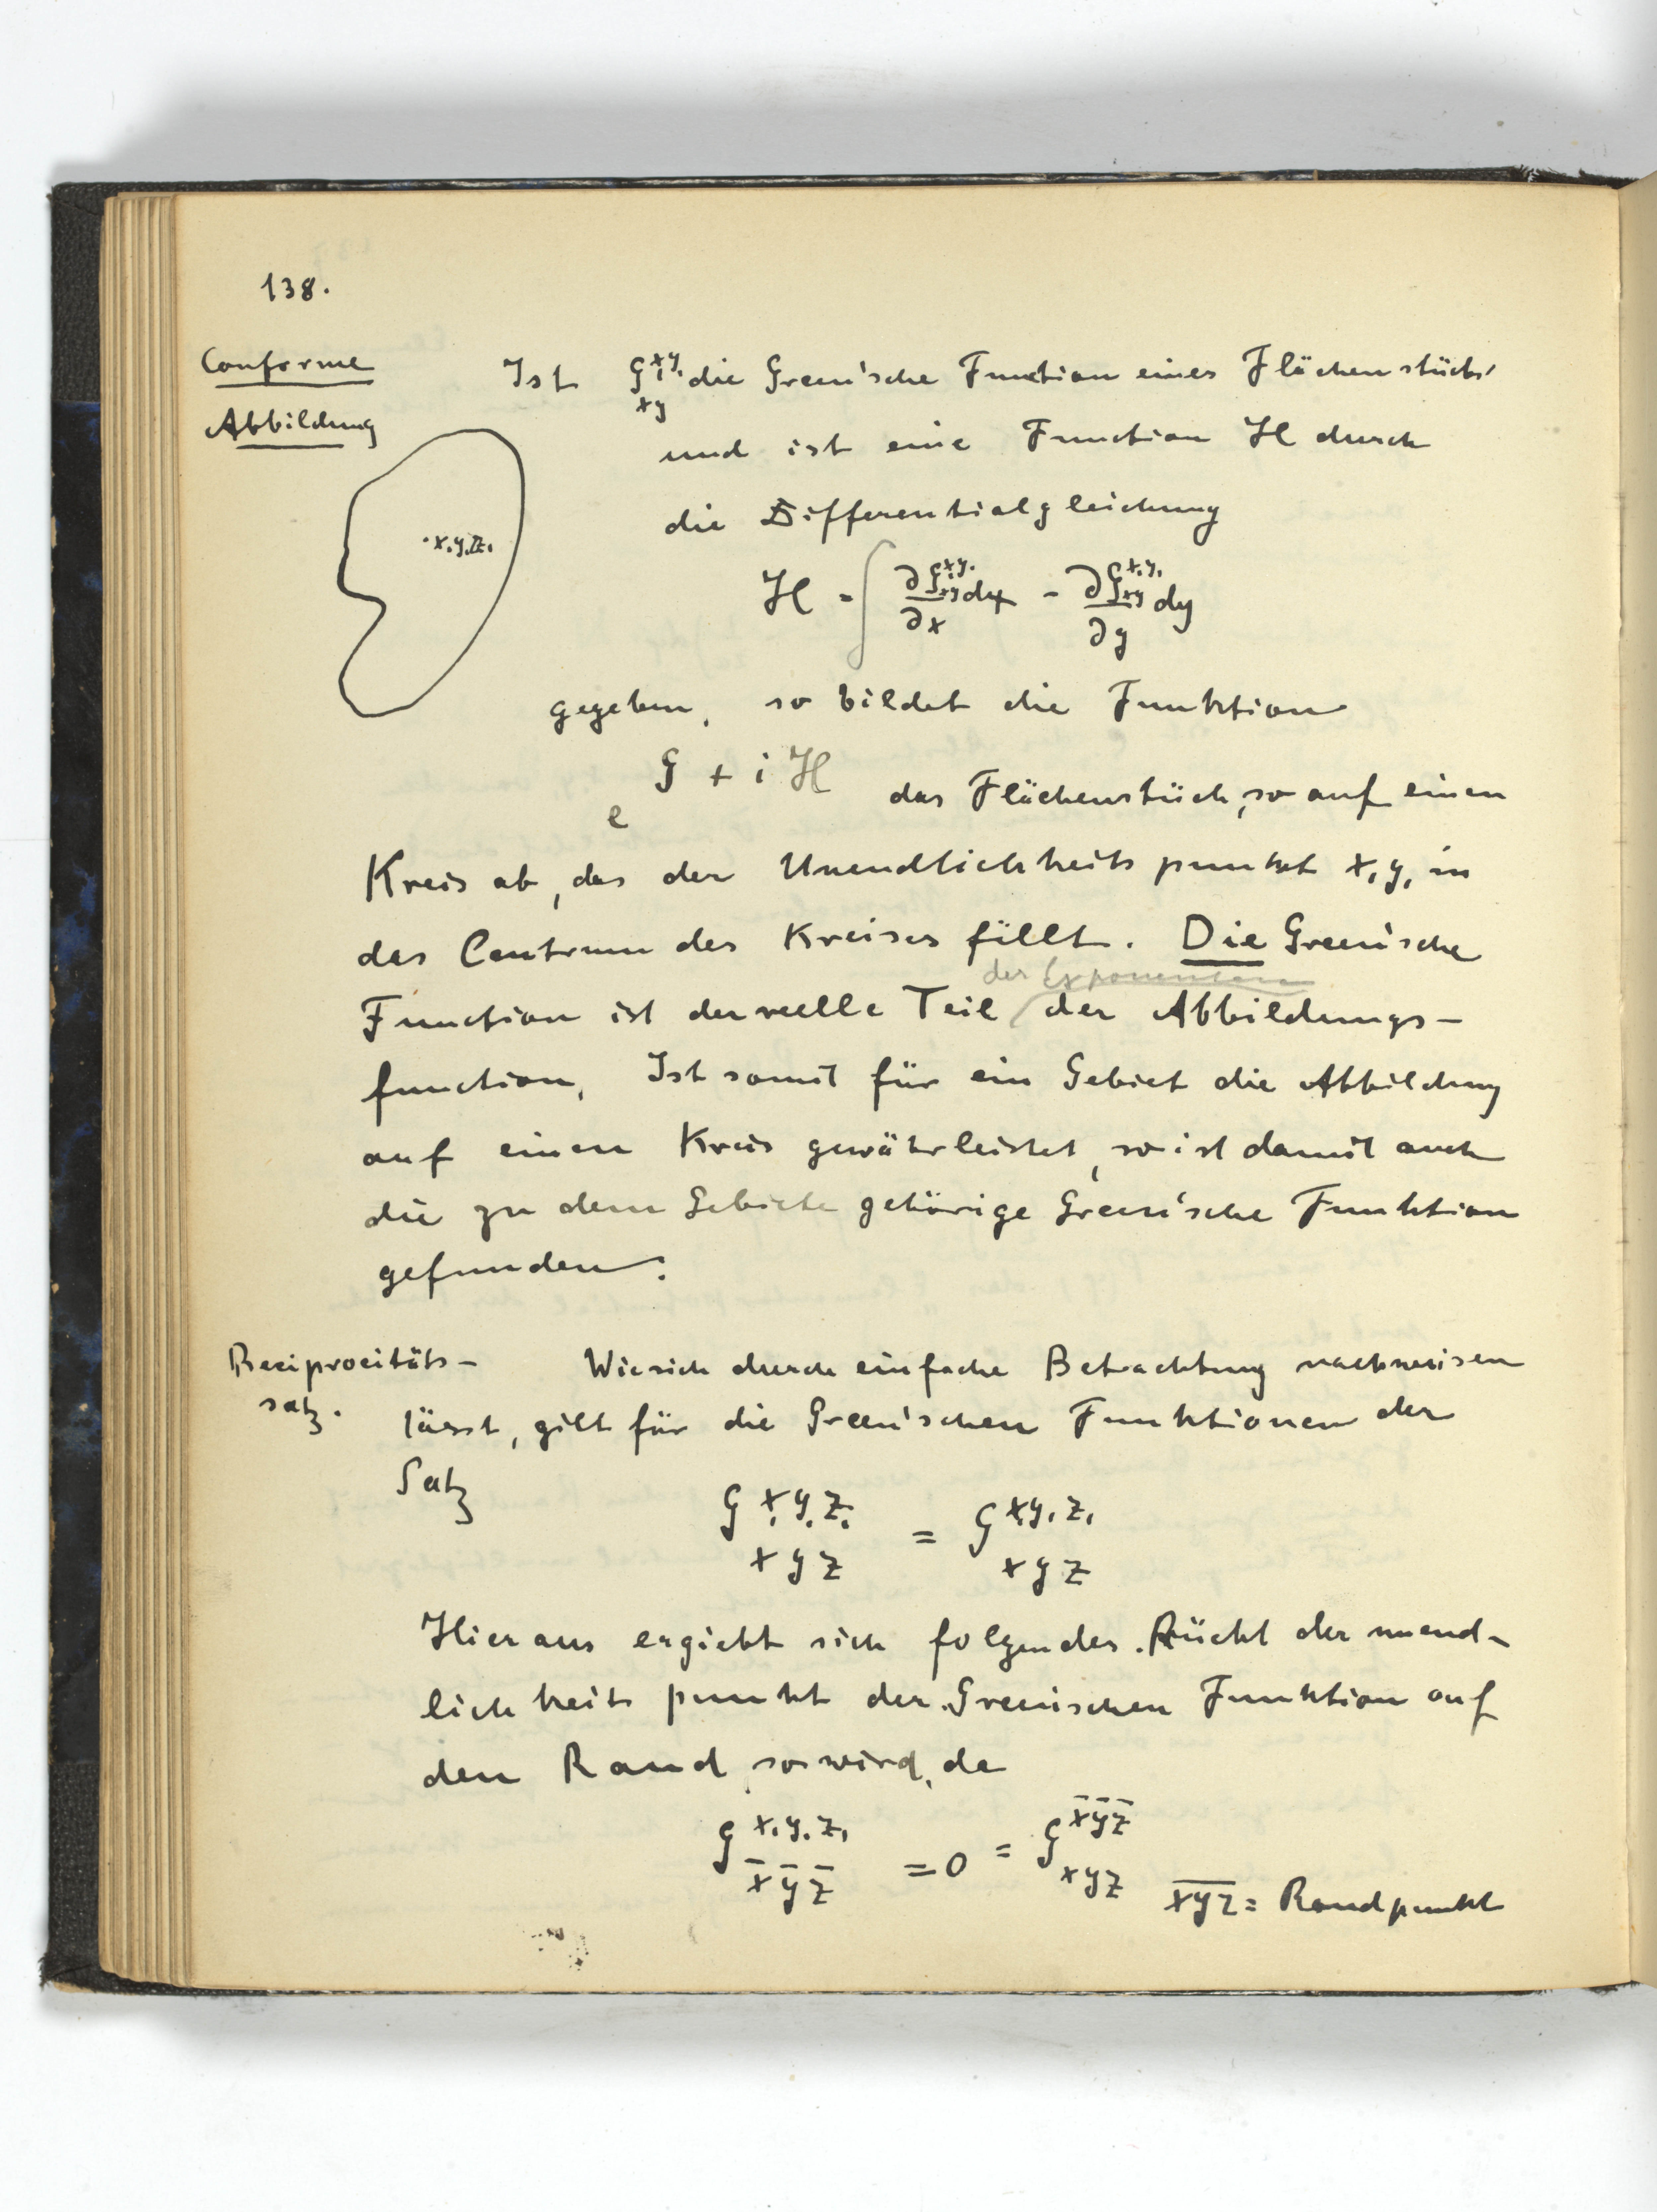 138.
Conforme
Abbildung
Ist G^{x₁y₁}_{xy} die Green'sche Function eines Flächenstücks,
und ist eine Function H durch
die Differentialgleichung
·x₁y₁z₁
H = ∫ ∂G^{x₁y₁}_{xy}/∂x dy - ∂G^{x₁y₁}_{xy}/∂y dy
gegeben, so bildet die Funktion
e^{G + iH} das Flächenstück, so auf einen
Kreis ab, das der Unendlichkeitspunkt x₁y₁ in
das Centrum des Kreises fällt. Die Green'sche
der Exponenten
Function ist der reelle Teil der Abbildungs-
function. Ist somit für ein Gebiet die Abbildung
auf einen Kreis gewährleistet, so ist damit auch
die zu dem Gebiete gehörige Green'sche Funktion
gefunden.
Reciprocitäts-
satz.
Wie sich durch einfache Betrachtung nachweisen
lässt, gilt für die Green'schen Funktionen der
Satz
G^{x₁y₁z₁}_{xyz} = G^{x₁y₁z₁}_{xyz}
Hieraus ergiebt sich folgendes. Rückt der unend-
lichkeitspunkt der Greenischen Funktion auf
den Rand so wird, da
G^{x₁y₁z₁}_{x̄ȳz̄} = 0 = G^{x̄ȳz̄}_{xyz}
x̄ȳz̄ = Randpunkt